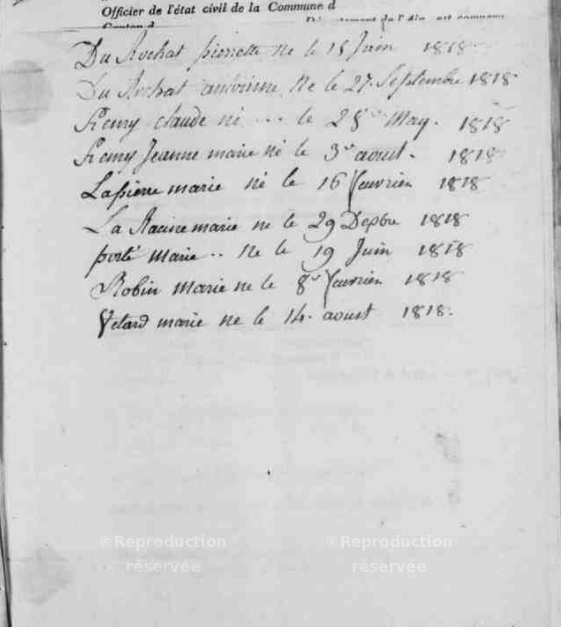 Officier de l'état civil de la Commune d
Canton d Département de l'Ain, est comparu
Du Rochat pierrette né le 15 Juin 1818
Du Rochat antoinne Né le 27. Septembre 1818
Remy claude né ... le 28 May. 1818
Remy Jeanne marie né le 3e aoust. 1818
Lapierre marie né le 16 feuvrier 1818
La Racine marie né le 29 Depbre 1818
porté marie .. Né le 19 Juin 1818
Robin marie né le 8e feuvrier 1818
Vetard marie né le 14. aoust 1818.
©Reproduction réservée
©Reproduction réservée